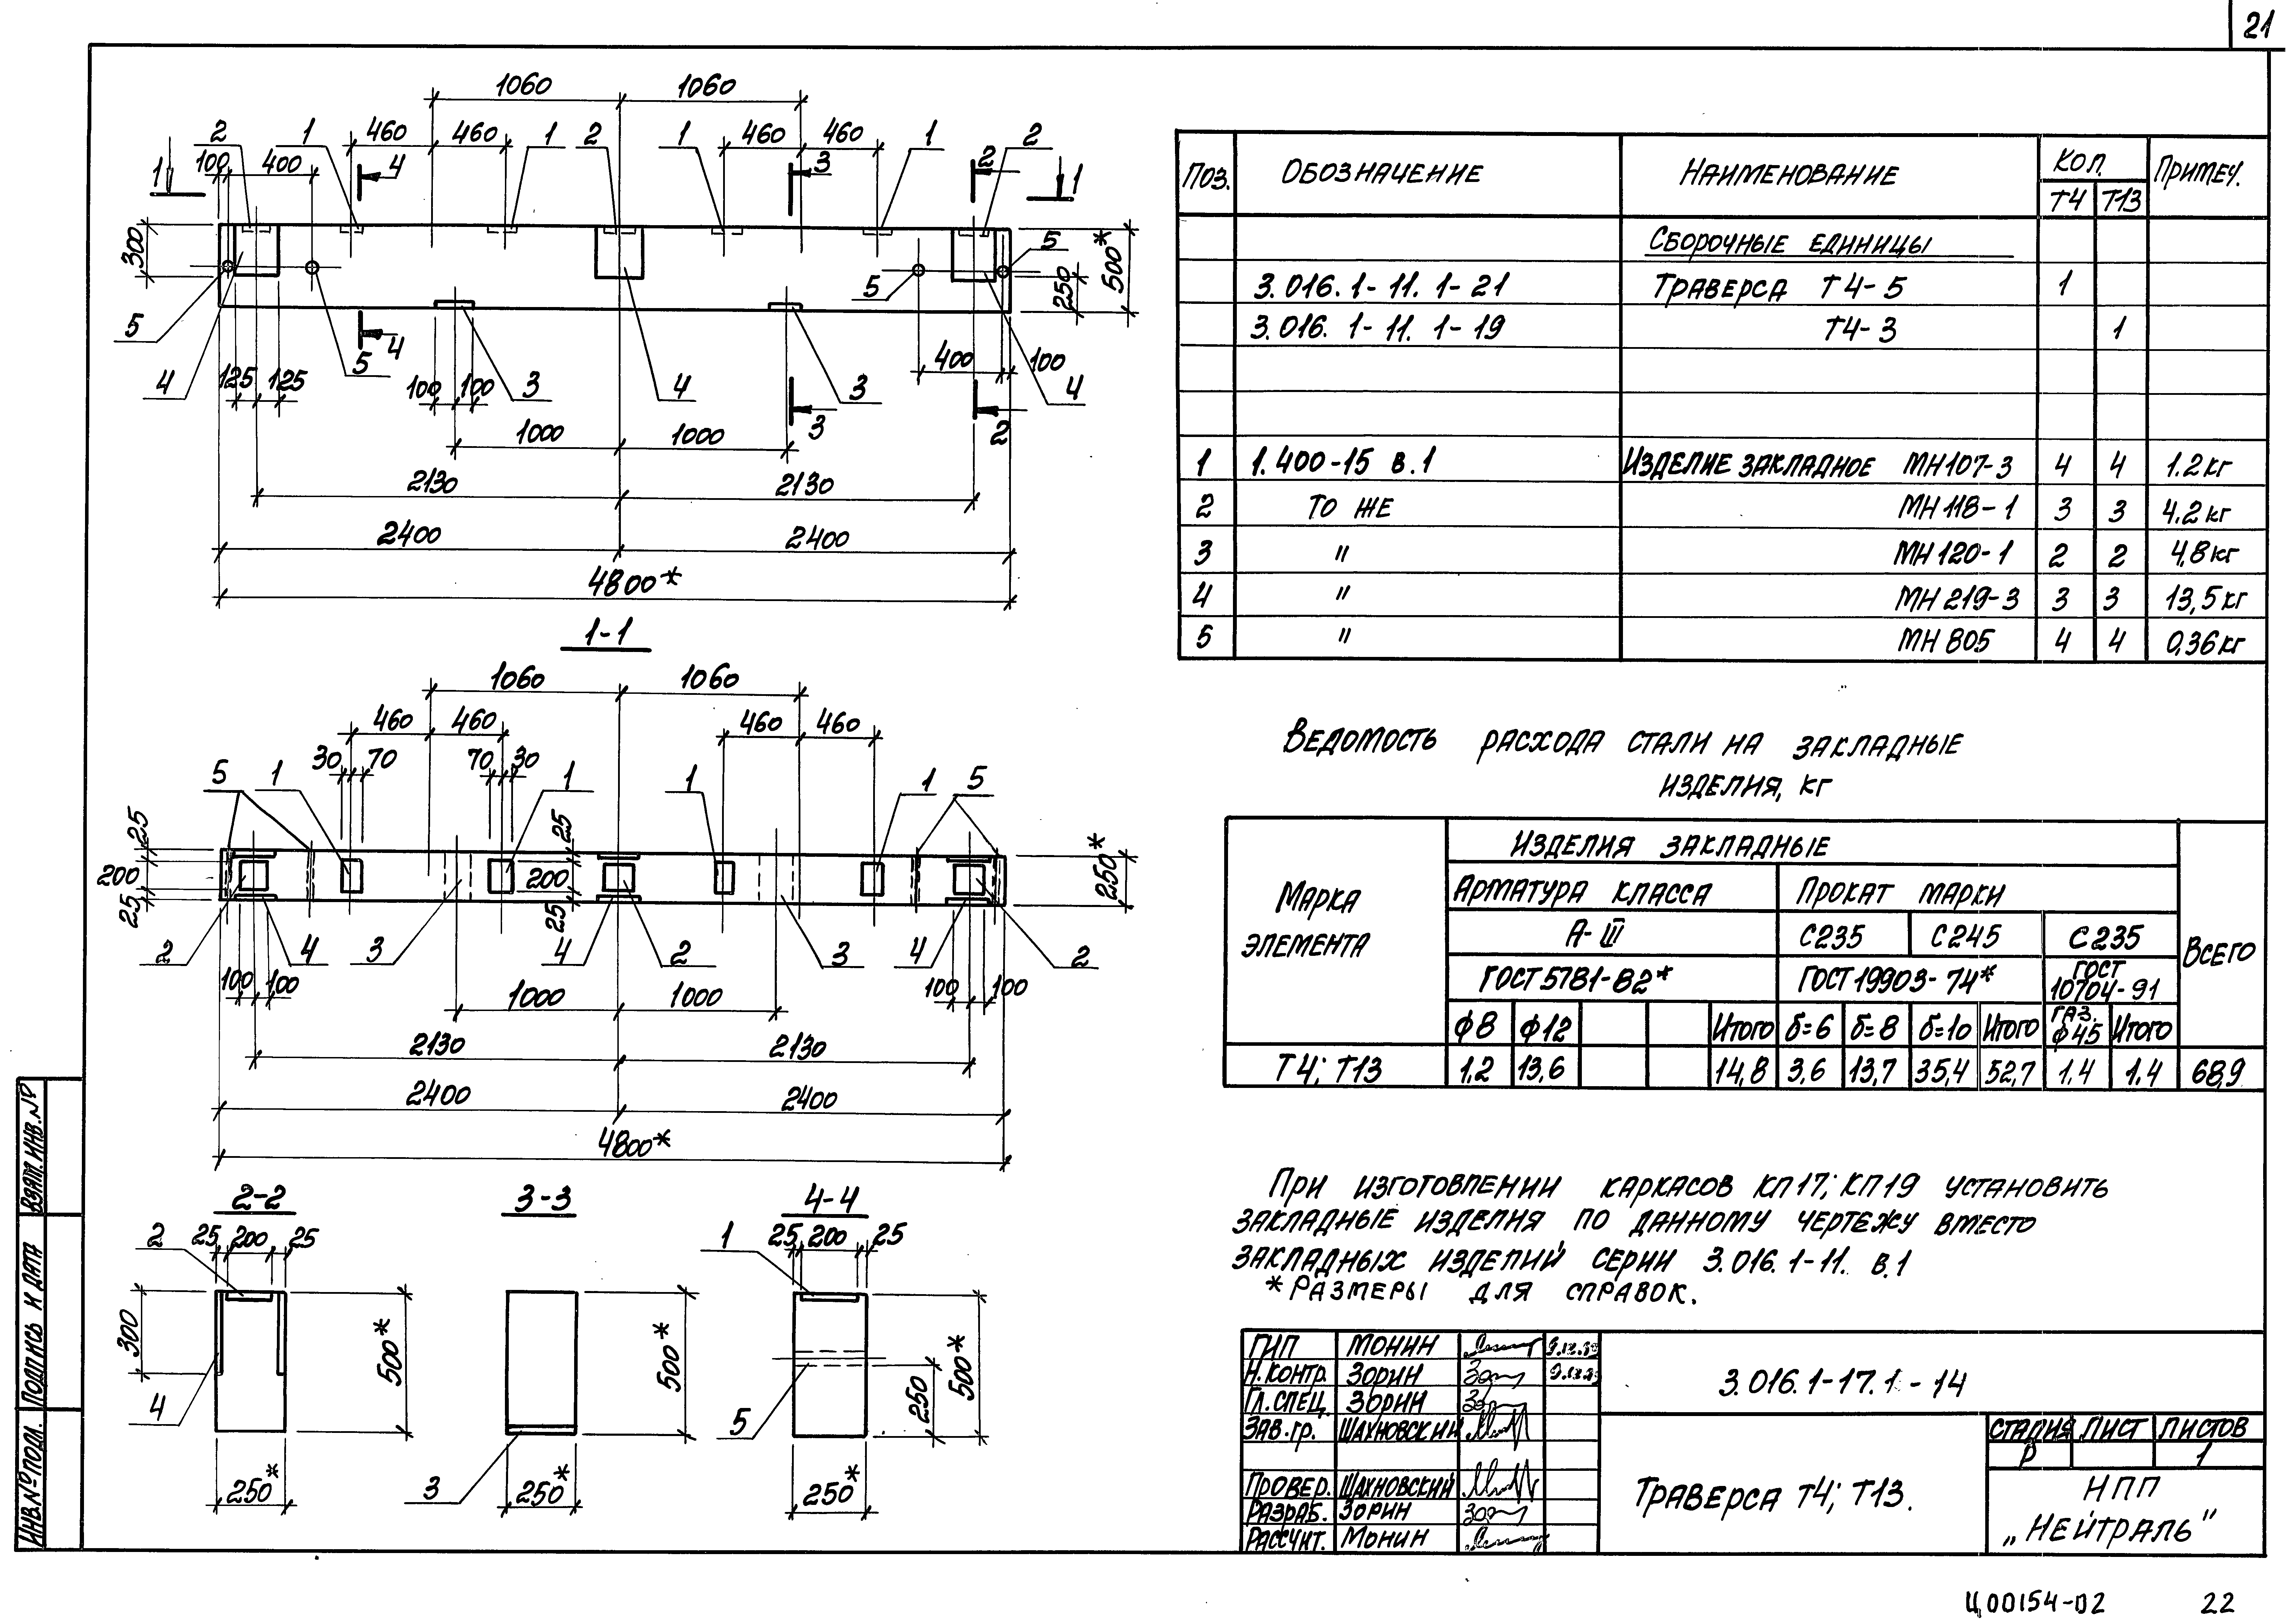 21
1060 1060
2 1 460 460 1 2 1 460 460 1 2 2
100 400 4 3
1 1
300 5 500*
5 5 250
5 4 5 400 100
4 125 125 100 100 3 4 3 4
1000 1000 3 2
2130 2130
2400 2400
4800*
1-1
1060 1060
460 460 460 460
30 70 70 30
5 1 1 1 1 5
25 25 250*
200 200
25 25
2 4 3 4 2 3 4 2
100 100 100 100
1000 1000
2130 2130
2400 2400
4800*
2-2 3-3 4-4
2 25 200 25 1 25 200 25
300 500* 500* 250 500*
4 5
250* 3 250* 250*
ПОЗ. ОБОЗНАЧЕНИЕ НАИМЕНОВАНИЕ КОЛ. ПРИМЕЧ.
Т4 Т13
СБОРОЧНЫЕ ЕДИНИЦЫ
3.016.1-11.1-21 ТРАВЕРСА Т4-5 1
3.016.1-11.1-19 Т4-3 1
1 1.400-15 в.1 ИЗДЕЛИЕ ЗАКЛАДНОЕ МН107-3 4 4 1.2кг
2 ТО ЖЕ МН118-1 3 3 4.2кг
3 " МН120-1 2 2 4,8кг
4 " МН219-3 3 3 13,5кг
5 " МН805 4 4 0,36кг
ВЕДОМОСТЬ РАСХОДА СТАЛИ НА ЗАКЛАДНЫЕ
ИЗДЕЛИЯ, КГ
МАРКА ЭЛЕМЕНТА ИЗДЕЛИЯ ЗАКЛАДНЫЕ ВСЕГО
АРМАТУРА КЛАССА ПРОКАТ МАРКИ
А-III С235 С245 С235
ГОСТ 5781-82* ГОСТ 19903-74* ГОСТ 10704-91
ф8 ф12 Итого б=6 б=8 б=10 Итого ГАЗ. ф45 Итого
Т4; Т13 1,2 13,6 14,8 3,6 13,7 35,4 52,7 1.4 1.4 68,9
ПРИ ИЗГОТОВЛЕНИИ КАРКАСОВ КП17; КП19 УСТАНОВИТЬ
ЗАКЛАДНЫЕ ИЗДЕЛИЯ ПО ДАННОМУ ЧЕРТЕЖУ ВМЕСТО
ЗАКЛАДНЫХ ИЗДЕЛИЙ СЕРИИ 3.016.1-11. в.1
* РАЗМЕРЫ ДЛЯ СПРАВОК.
ГИП МОНИН
Н.КОНТР. ЗОРИН
ГЛ.СПЕЦ. ЗОРИН
ЗАВ.ГР. ШАХНОВСКИЙ
ПРОВЕР. ШАХНОВСКИЙ
РАЗРАБ. ЗОРИН
РАССЧИТ. МОНИН
3.016.1-17.1-14
ТРАВЕРСА Т4; Т13.
СТАДИЯ ЛИСТ ЛИСТОВ
Р 1
НПП
„НЕЙТРАЛЬ"
ИНВ.№ ПОДЛ. ПОДПИСЬ И ДАТА ВЗАМ. ИНВ.№
Ц00154-02 22